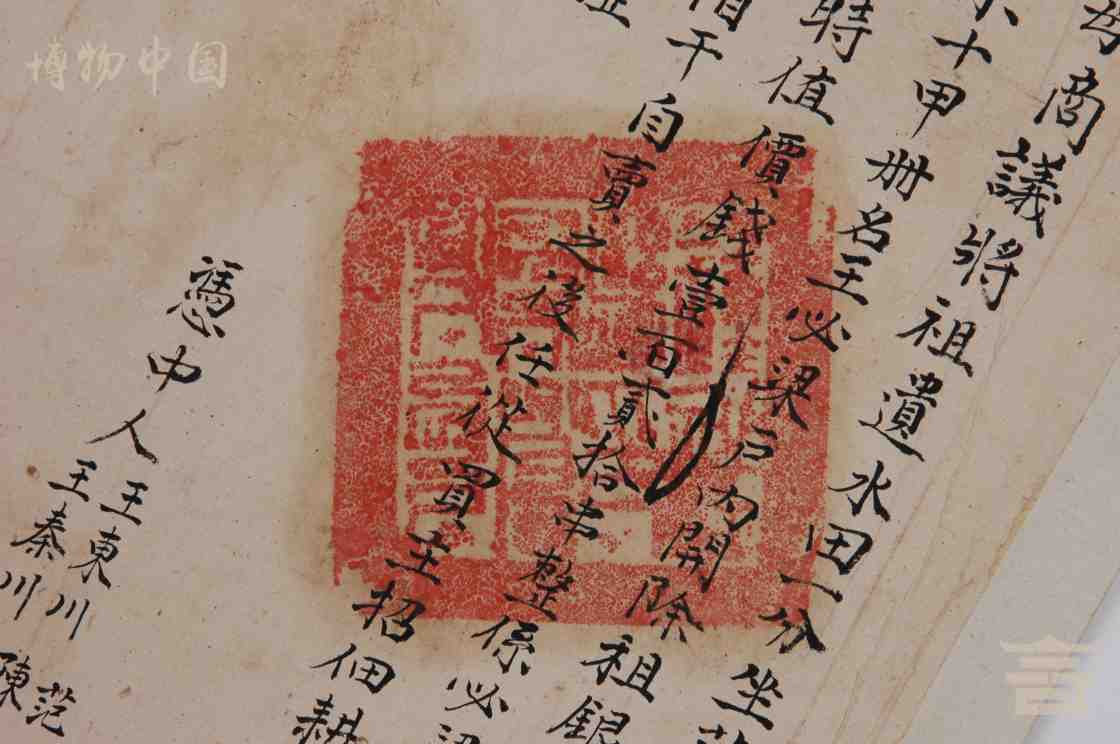 母商議將祖遺水田一分坐
十甲册名王必梁戶内開除祖銀
時值價錢壹百貳拾串整係必梁
相干自賣之後任從買主招佃耕
憑中人
王東川
王秦川
范
陳
博物中国